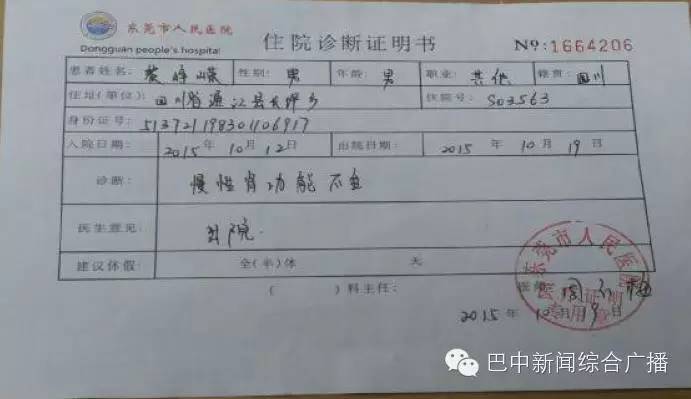 东莞市人民医院
Dongguan people's hospital
住院诊断证明书
No:1664206
患者姓名: 性别: 男 年龄: 男 职业: 其他 籍贯: 四川
住址(单位): 四川省通江县长坪乡 住院号: 503563
身份证号: 513721198301106917
入院日期: 2015年10月12日 出院日期: 2015年10月19日
诊断: 慢性肾功能不全
医生意见: 出院.
建议休假: 全(半)休 天
( )科主任: 医师:
2015年10月19日
东莞市人民医院
巴中新闻综合广播